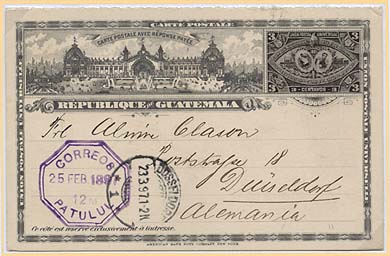 CARTE POSTALE
CARTE POSTALE AVEC RÉPONSE PAYÉE
3 UNION POSTAL UNIVERSAL 3
3 CENTAVOS 3
RÉPUBLIQUE DE GUATEMALA
UNION POSTALE UNIVERSELLE
Alwine Clason
18
Düsseldorf
Alemania
CORREOS
25 FEB 189
12M
PATULUL
1
DÜSSELDORF
23.3.97.11-12N
Ce côté est reservé exclusivement à l'adresse.
AMERICAN BANK NOTE COMPANY, NEW YORK